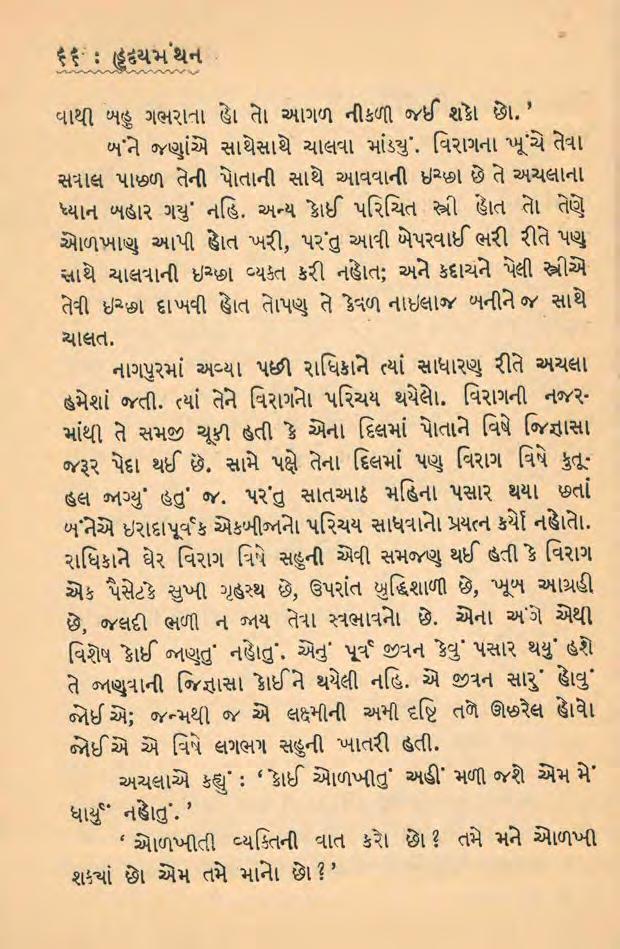 ૬૬ : હૃદયમંથન
વાથી બહુ ગભરાતા હો તો આગળ નીકળી જઈ શકો છો.’
બંને જણાંએ સાથેસાથે ચાલવા માંડયું. વિરાગના ખૂંચે તેવા
સવાલ પાછળ તેની પોતાની સાથે આવવાની ઇચ્છા છે તે અચલાના
ધ્યાન બહાર ગયું નહિ. અન્ય કોઈ પરિચિત સ્ત્રી હોત તો તેણે
ઓળખાણ આપી હોત ખરી, પરંતુ આવી બેપરવાઈ ભરી રીતે પણ
સાથે ચાલવાની ઇચ્છા વ્યકત કરી નહોત; અને કદાચને પેલી સ્ત્રીએ
તેવી ઇચ્છા દાખવી હોત તોપણ તે કેવળ નાઇલાજ બનીને જ સાથે
ચાલત.
નાગપુરમાં અવ્યા પછી રાધિકાને ત્યાં સાધારણ રીતે અચલા
હમેશાં જતી. ત્યાં તેને વિરાગનો પરિચય થયેલો. વિરાગની નજર-
માંથી તે સમજી ચૂકી હતી કે એના દિલમાં પોતાને વિષે જિજ્ઞાસા
જરૂર પેદા થઈ છે. સામે પક્ષે તેના દિલમાં પણ વિરાગ વિષે કુતૂ-
હલ જાગ્યું હતું જ. પરંતુ સાતઆઠ મહિના પસાર થયા છતાં
બંનેએ ઇરાદાપૂર્વક એકબીજાનો પરિચય સાધવાનો પ્રયત્ન કર્યો નહોતો.
રાધિકાને ઘેર વિરાગ વિષે સહુની એવી સમજણ થઈ હતી કે વિરાગ
એક પૈસેટકે સુખી ગૃહસ્થ છે, ઉપરાંત બુદ્ધિશાળી છે, ખૂબ આગ્રહી
છે, જલદી ભળી ન જાય તેવા સ્વભાવનો છે. એના અંગે એથી
વિશેષ કોઈ જાણતું નહોતું. એનું પૂર્વ જીવન કેવું પસાર થયું હશે
તે જાણવાની જિજ્ઞાસા કોઈને થયેલી નહિ. એ જીવન સારું હોવું
જોઈએ; જન્મથી જ એ લક્ષ્મીની અમી દૃષ્ટિ તળે ઊછરેલ હોવો
જોઈએ એ વિષે લગભગ સહુની ખાતરી હતી.
અચલાએ કહ્યું : ‘કોઈ ઓળખીતું અહીં મળી જશે એમ મેં
ધાર્યું નહોતું.’
‘ઓળખીતી વ્યક્તિની વાત કરો છો? તમે મને ઓળખી
શકયાં છો એમ તમે માનો છો?’